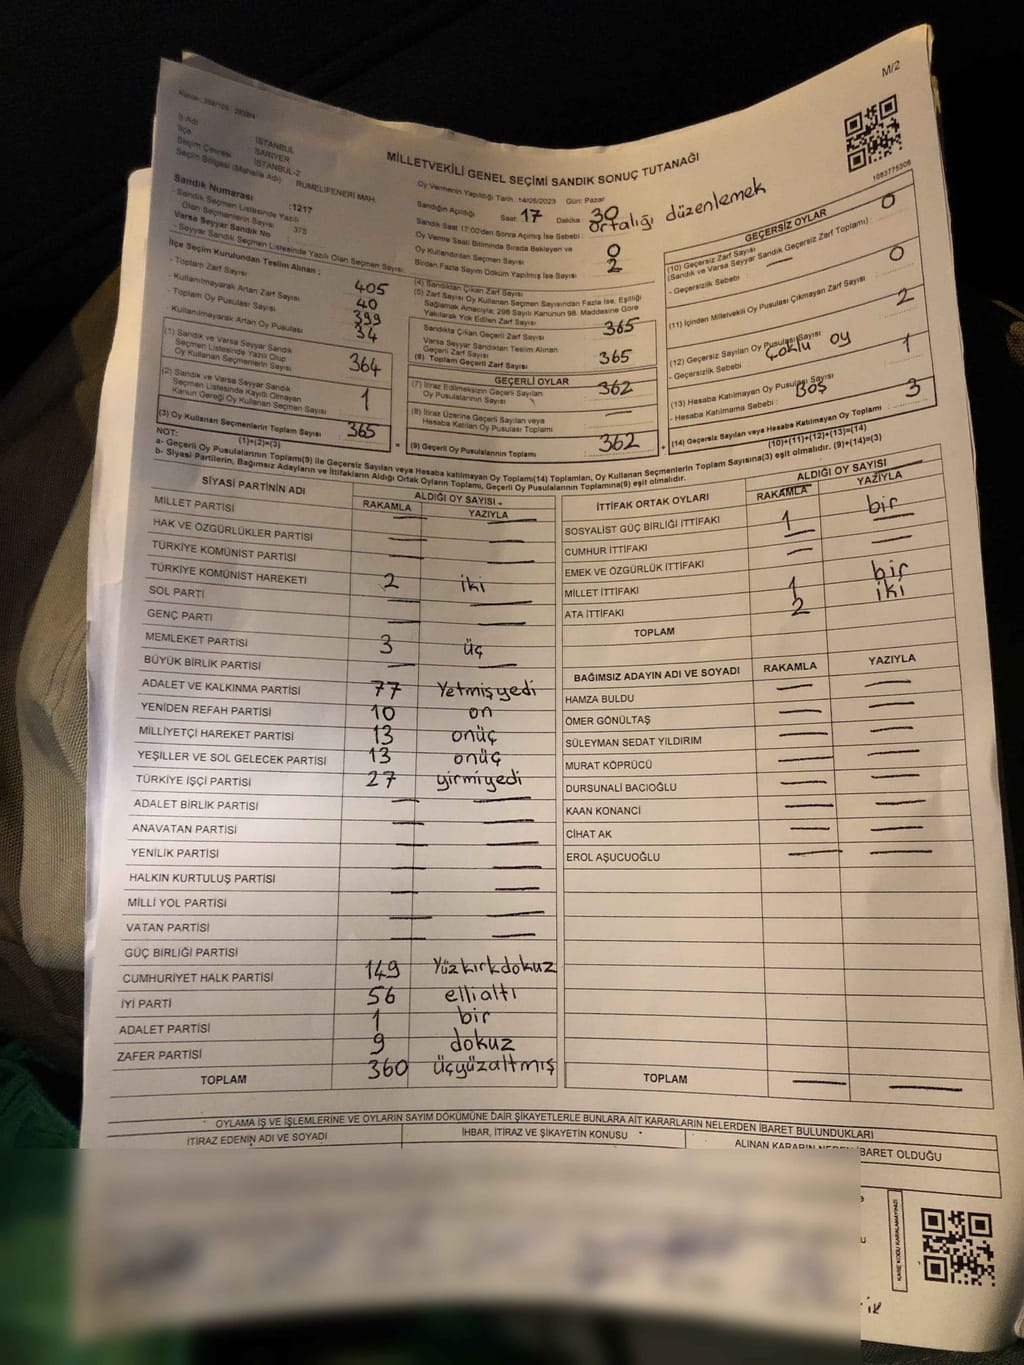 M/2
1083775306
MİLLETVEKİLİ GENEL SEÇİMİ SANDIK SONUÇ TUTANAĞI
İl Adı İSTANBUL
İlçe SARIYER
Seçim Çevresi İSTANBUL-2
Seçim Bölgesi (Mahalle Adı) RUMELİFENERİ MAH.
Sandık Numarası :1217
- Sandık Seçmen Listesinde Yazılı
Olan Seçmenlerin Sayısı : 375
Varsa Seyyar Sandık No
- Seyyar Sandık Seçmen Listesinde Yazılı Olan Seçmen Sayısı:
Oy Vermenin Yapıldığı Tarih :14/05/2023 Gün: Pazar
Sandığın Açıldığı Saat: 17 Dakika: 30
Sandık Saat 17:00'den Sonra Açılmış İse Sebebi : Ortalığı düzenlemek
Oy Verme Saati Bitiminde Sırada Bekleyen ve
Oy Kullandırılan Seçmen Sayısı 0
Birden Fazla Sayım Döküm Yapılmış İse Sayısı 2
İlçe Seçim Kurulundan Teslim Alınan :
- Toplam Zarf Sayısı 405
- Kullanılmayarak Artan Zarf Sayısı 40
- Toplam Oy Pusulası Sayısı 399
- Kullanılmayarak Artan Oy Pusulası 34
(1) Sandık ve Varsa Seyyar Sandık
Seçmen Listesinde Yazılı Olup
Oy Kullanan Seçmenlerin Sayısı 364
(2) Sandık ve Varsa Seyyar Sandık
Seçmen Listesinde Kayıtlı Olmayan
Kanun Gereği Oy Kullanan Seçmen Sayısı 1
(3) Oy Kullanan Seçmenlerin Toplam Sayısı 365
(1)+(2)=(3)
(4) Sandıktan Çıkan Zarf Sayısı
(5) Zarf Sayısı Oy Kullanan Seçmen Sayısından Fazla İse, Eşitliği
Sağlamak Amacıyla; 298 Sayılı Kanunun 98. Maddesine Göre
Yakılarak Yok Edilen Zarf Sayısı
Sandıkta Çıkan Geçerli Zarf Sayısı 365
Varsa Seyyar Sandıktan Teslim Alınan
Geçerli Zarf Sayısı
(6) Toplam Geçerli Zarf Sayısı 365
GEÇERLİ OYLAR
(7) İtiraz Edilmeksizin Geçerli Sayılan
Oy Pusulalarının Sayısı 362
(8) İtiraz Üzerine Geçerli Sayılan veya
Hesaba Katılan Oy Pusulası Toplamı —
(9) Geçerli Oy Pusulalarının Toplamı 362
GEÇERSİZ OYLAR
(10) Geçersiz Zarf Sayısı 0
(Sandık ve Varsa Seyyar Sandık Geçersiz Zarf Toplamı)
- Geçersizlik Sebebi : —
(11) İçinden Milletvekili Oy Pusulası Çıkmayan Zarf Sayısı 0
(12) Geçersiz Sayılan Oy Pusulası Sayısı 2
- Geçersizlik Sebebi : Çoklu oy
(13) Hesaba Katılmayan Oy Pusulası Sayısı 1
- Hesaba Katılmama Sebebi : BOŞ
(14) Geçersiz Sayılan veya Hesaba Katılmayan Oy Toplamı 3
(10)+(11)+(12)+(13)=(14)
NOT:
a- Geçerli Oy Pusulalarının Toplamı(9) ile Geçersiz Sayılan veya Hesaba katılmayan Oy Toplamı(14) Toplamları, Oy Kullanan Seçmenlerin Toplam Sayısına(3) eşit olmalıdır. (9)+(14)=(3)
b- Siyasi Partilerin, Bağımsız Adayların ve İttifakların Aldığı Ortak Oyların Toplamı, Geçerli Oy Pusulalarının Toplamına(9) eşit olmalıdır.
SİYASİ PARTİNİN ADI ALDIĞI OY SAYISI
RAKAMLA YAZIYLA
MİLLET PARTİSİ — —
HAK VE ÖZGÜRLÜKLER PARTİSİ — —
TÜRKİYE KOMÜNİST PARTİSİ — —
TÜRKİYE KOMÜNİST HAREKETİ 2 iki
SOL PARTİ — —
GENÇ PARTİ — —
MEMLEKET PARTİSİ 3 üç
BÜYÜK BİRLİK PARTİSİ — —
ADALET VE KALKINMA PARTİSİ 77 Yetmişyedi
YENİDEN REFAH PARTİSİ 10 on
MİLLİYETÇİ HAREKET PARTİSİ 13 onüç
YEŞİLLER VE SOL GELECEK PARTİSİ 13 onüç
TÜRKİYE İŞÇİ PARTİSİ 27 yirmiyedi
ADALET BİRLİK PARTİSİ — —
ANAVATAN PARTİSİ — —
YENİLİK PARTİSİ — —
HALKIN KURTULUŞ PARTİSİ — —
MİLLİ YOL PARTİSİ
VATAN PARTİSİ — —
GÜÇ BİRLİĞİ PARTİSİ — —
CUMHURİYET HALK PARTİSİ 149 Yüzkırkdokuz
İYİ PARTİ 56 ellialtı
ADALET PARTİSİ 1 bir
ZAFER PARTİSİ 9 dokuz
TOPLAM 360 üçyüzaltmış
İTTİFAK ORTAK OYLARI ALDIĞI OY SAYISI
RAKAMLA YAZIYLA
SOSYALİST GÜÇ BİRLİĞİ İTTİFAKI 1 bir
CUMHUR İTTİFAKI — —
EMEK VE ÖZGÜRLÜK İTTİFAKI — —
MİLLET İTTİFAKI 1 bir
ATA İTTİFAKI 2 iki
TOPLAM
BAĞIMSIZ ADAYIN ADI VE SOYADI RAKAMLA YAZIYLA
HAMZA BULDU — —
ÖMER GÖNÜLTAŞ — —
SÜLEYMAN SEDAT YILDIRIM — —
MURAT KÖPRÜCÜ — —
DURSUNALİ BACIOĞLU — —
KAAN KONANCİ — —
CİHAT AK — —
EROL AŞUCUOĞLU — —
TOPLAM — —
OYLAMA İŞ VE İŞLEMLERİNE VE OYLARIN SAYIM DÖKÜMÜNE DAİR ŞİKAYETLERLE BUNLARA AİT KARARLARIN NELERDEN İBARET BULUNDUKLARI
İTİRAZ EDENİN ADI VE SOYADI İHBAR, İTİRAZ VE ŞİKAYETİN KONUSU ALINAN KARARIN NEDEN İBARET OLDUĞU
KARE KODU KARALAMAYINIZ